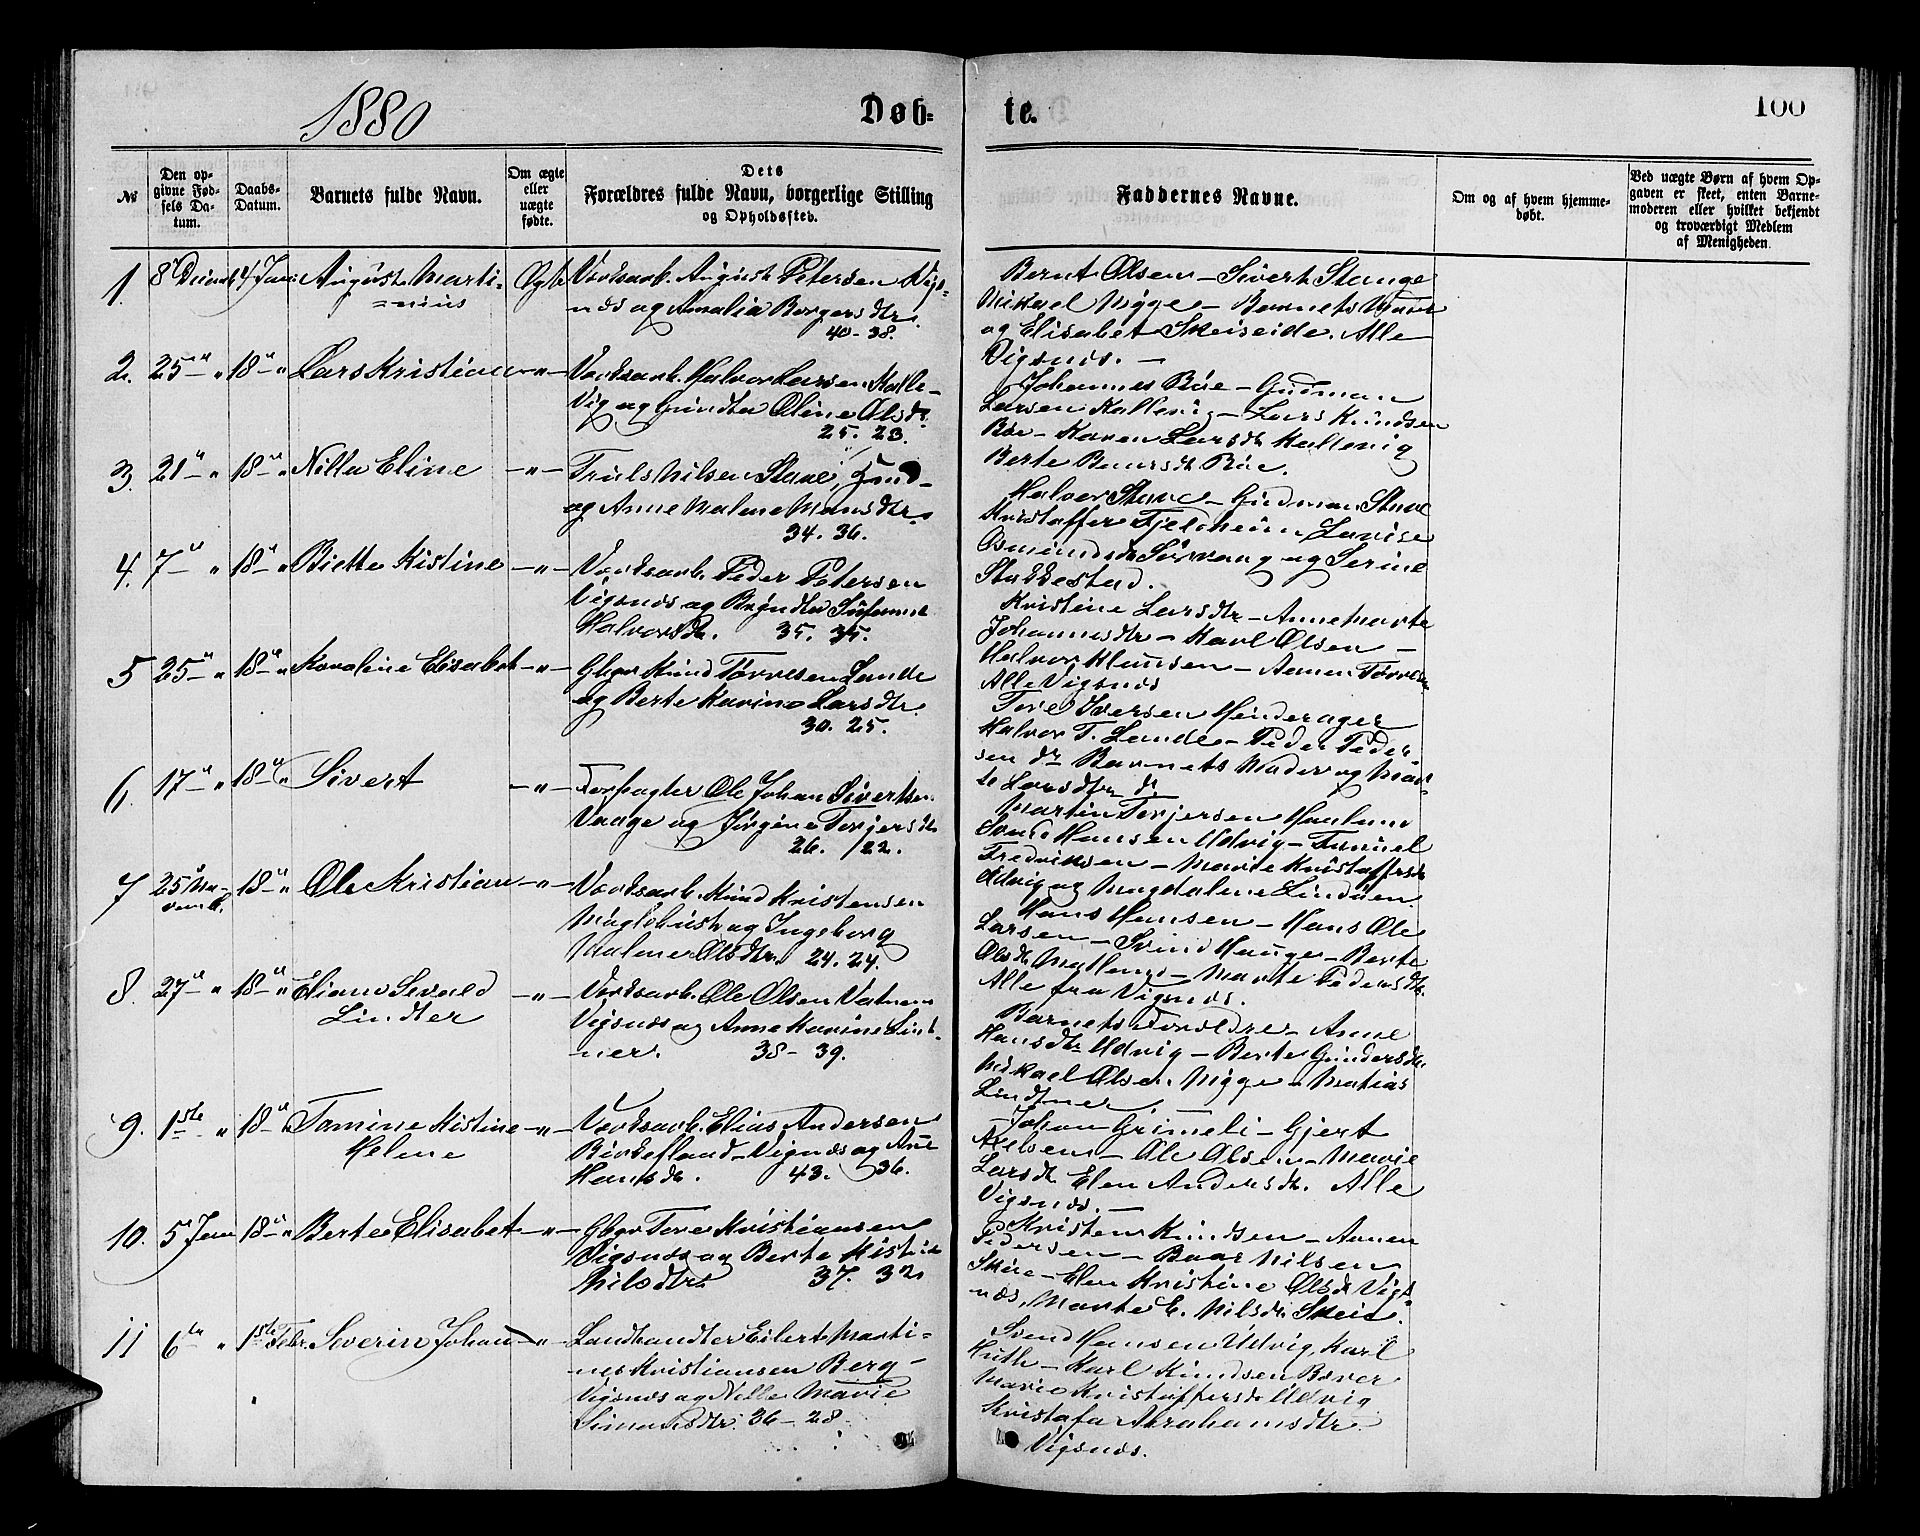 1880
Døb=
te.
100
№
Den op-
givne Fød-
sels Da-
tum.
Daabs-
Datum.
Barnets fulde Navn.
Om ægte
eller
uægte
fødte.
Dets
Forældres fulde Navn, borgerlige Stilling
og Opholdssted.
Faddernes Navne.
Om og af hvem hjemme-
døbt.
Ved uægte Børn af hvem Op-
gaven er skeet, enten Barne-
moderen eller hvilket bekjendt
og troværdigt Medlem
af Menigheden.
1. 8 4 Jan August Marti-
nius
August Petersen Vigs-
næs og Amalia Borgersdtr.
40-38.
Bernt Olsen - Sivert Stange
Mikael Nygge - Barnets
og Elisabet Skeiseide. Alle
Vigsnæs. -
2. 25 " " 18 " " Lars Kristian -"-
Værksarb. Halvor Larsen Kalle-
vig og Oline Olsdtr
25. 23.
Johannes Bøe - Gudman
Larsen Kallevig - Lars Knudsen
Bøe - Karen Larsdtr Kallevig
Berte Bøe.
3. 21 " " 18 " " Nilla Eline -"-
Truls Nilsen Stave,
og Anne Malene Mansdtr.
34. 36.
Halvor Stave - Gudman Stave
Kristoffer Fjeldheim Lovise
Osmundsdtr og Serine
Stakkestad.
4. 7 " " 18 " " Kistine -"-
Værksarb. Peder Petersen
Vigsnæs og
Halvorsdtr. 35. 35.
Kristine Larsdtr - Anne Marte
Johannesdtr - Karl Olsen -
Halvor Klausen - Aamen Tørresen
Alle Vigsnæs
5 25 " " 18 " " Karoline Elisabet -"-
Gbgr Knud Tørresen Lande
og Berte Karine Larsdtr.
30. 25.
Tore Iversen Hinderager
Halvor T. Lande - Peder Peder-
sen dr Barnets Moder og Mar-
te Larsdtr dr
6. 17 " " 18 " " Sivert -"-
Forpagter Ole Johan Sivertsen
Vaage og Jørgine Torjersdtr
26. /22.
Martin Torjersen Haaland
Svend Hansen Udvig -
Fredriksen - Marie Kristoffersdtr
Udvig og Magdalene
7 25 No-
vemb. 18 " " Ole Kristian -"-
Værksarb. Knud Kristensen
og Ingeborg
Malene Olsdtr. 24. 24.
Hans Hansen - Hans Ole
Larsen - Svend Hauge - Berte
Olsdtr - Marte Pedersdtr.
Alle fra Vigsnæs.
8. 27 " " 18 " " Eliam Sevald
Lindter -"-
Værksarb. Ole Olsen
Vigsnæs og Anne Karine Lind-
ner. 38- 39.
Barnets Forældre - Anne
Hansdtr Udvig - Berte Gundersdtr.
Mikael Olsen Nygge - Matias
Lindtner
9. 1ste " 18 " " Tomine Kistine
Helene -"-
Værksarb. Elias Andersen
Birkefland - Vignæs og Ane
Hansdtr. 43. 36.
Johan Grimeli - Gjert
Axelsen - Ole Olsen - Marie
Larsdtr Elen Andersdtr. Alle
Vigsnæs. -
10. 5 Jan 18 " " Berte Elisabet -"-
Gbgr Tore Kristiansen
Vigsnæs og Berte Kistine
Nilsdtr. 37. 32
Kristen Knudsen - Aamen
Pedersen - Baar Nilsen
Skeie - Elen Kristine Olsdtr Vigs-
næs, Marte E. Nilsdtr Skeie.
11 6te " 1ste Febr. Severin Johan -"-
Landhandler Eilert Marti-
nes Kristiansen Berg -
Vigsnæs og Nille Marie
Simonsdtr. 36-28.
Svend Hansen Udvig, Karl
Huth - Karl Knudsen Bøver
Marie Kristoffersdtr Udvig
Kristofa Abrahamsdtr
Vigsnæs.